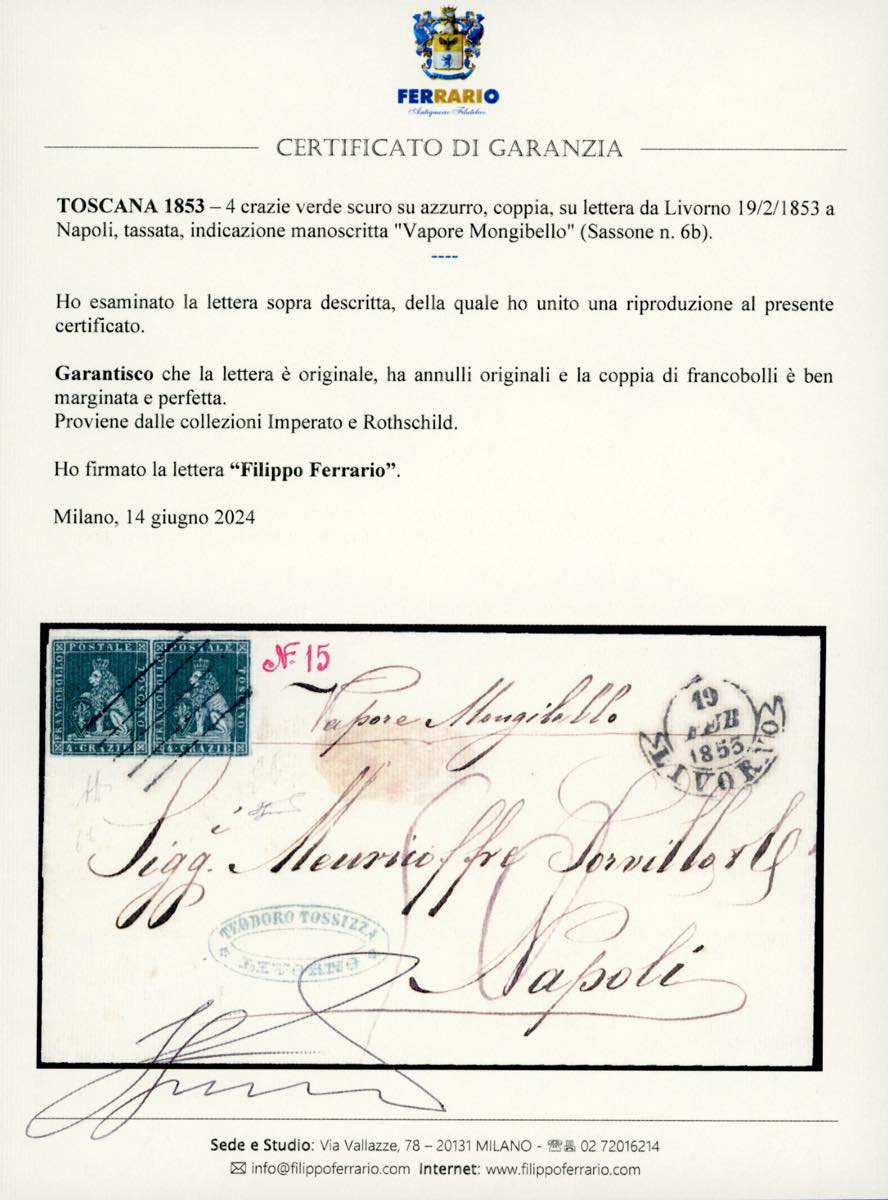 FERRARIO
Antiquariato Filatelico
CERTIFICATO DI GARANZIA
TOSCANA 1853 – 4 crazie verde scuro su azzurro, coppia, su lettera da Livorno 19/2/1853 a
Napoli, tassata, indicazione manoscritta "Vapore Mongibello" (Sassone n. 6b).
----
Ho esaminato la lettera sopra descritta, della quale ho unito una riproduzione al presente
certificato.
Garantisco che la lettera è originale, ha annulli originali e la coppia di francobolli è ben
marginata e perfetta.
Proviene dalle collezioni Imperato e Rothschild.
Ho firmato la lettera “Filippo Ferrario”.
Milano, 14 giugno 2024
FRANCOBOLLO POSTALE TOSCANO 4 CRAZIE
FRANCOBOLLO POSTALE TOSCANO 4 CRAZIE
Nº 15
Vapore Mongibello
19
FEB
1853
LIVORNO
Sigg.i Meuricoffre Sorvillo & C
TEODORO TOSSIZZA
LIVORNO
Napoli
Sede e Studio: Via Vallazze, 78 – 20131 MILANO - ☏ 02 72016214
✉ info@filippoferrario.com Internet: www.filippoferrario.com